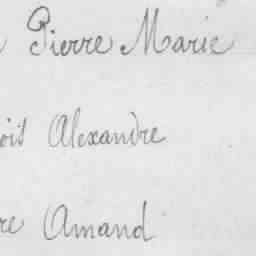 Pierre Marie
ois Alexandre
re Amand